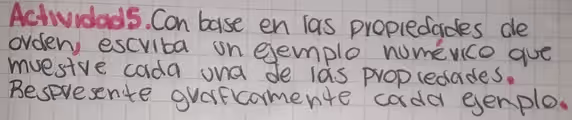 Actividad5. Con base en las propiedades de
orden, escriba un ejemplo numérico que
muestre cada una de las propiedades.
Respresente graficamente cada ejenplo.